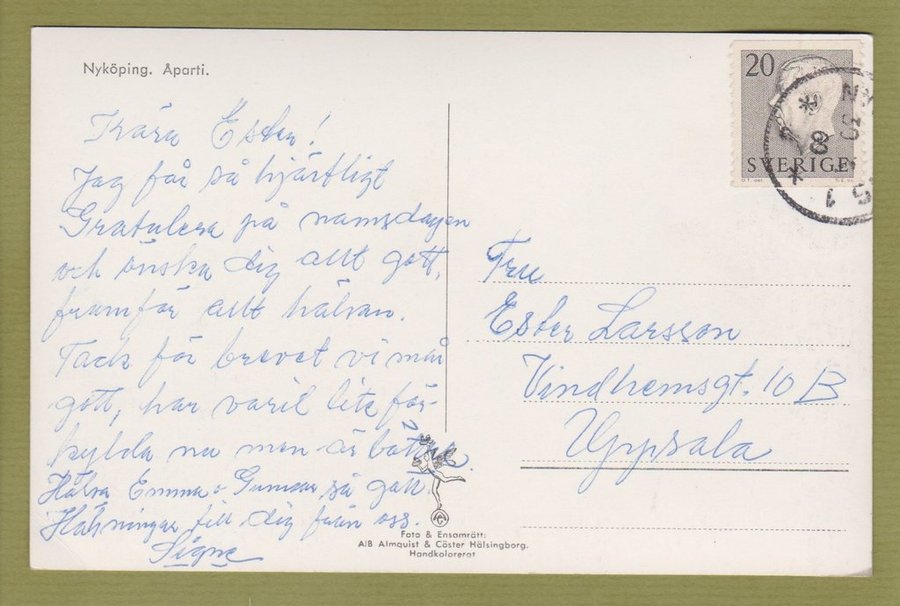 Nyköping. Åparti.
Kära Ester!
Jag får så hjärtligt
Gratulera på namsdagen
och önska dig allt gott,
framför allt hälsan.
Tack för brevet vi mår
gott, har varit lite för-
kylda nu men är bättre.
Hälsa Emma o Gunnar så gott
Hälsningar till dig från oss.
Signe
20
SVERIGE
Fru
Ester Larsson
Vindhemsgt. 10 B
Uppsala
Foto & Ensamrätt:
A/B Almquist & Cöster Hälsingborg.
Handkolorerat